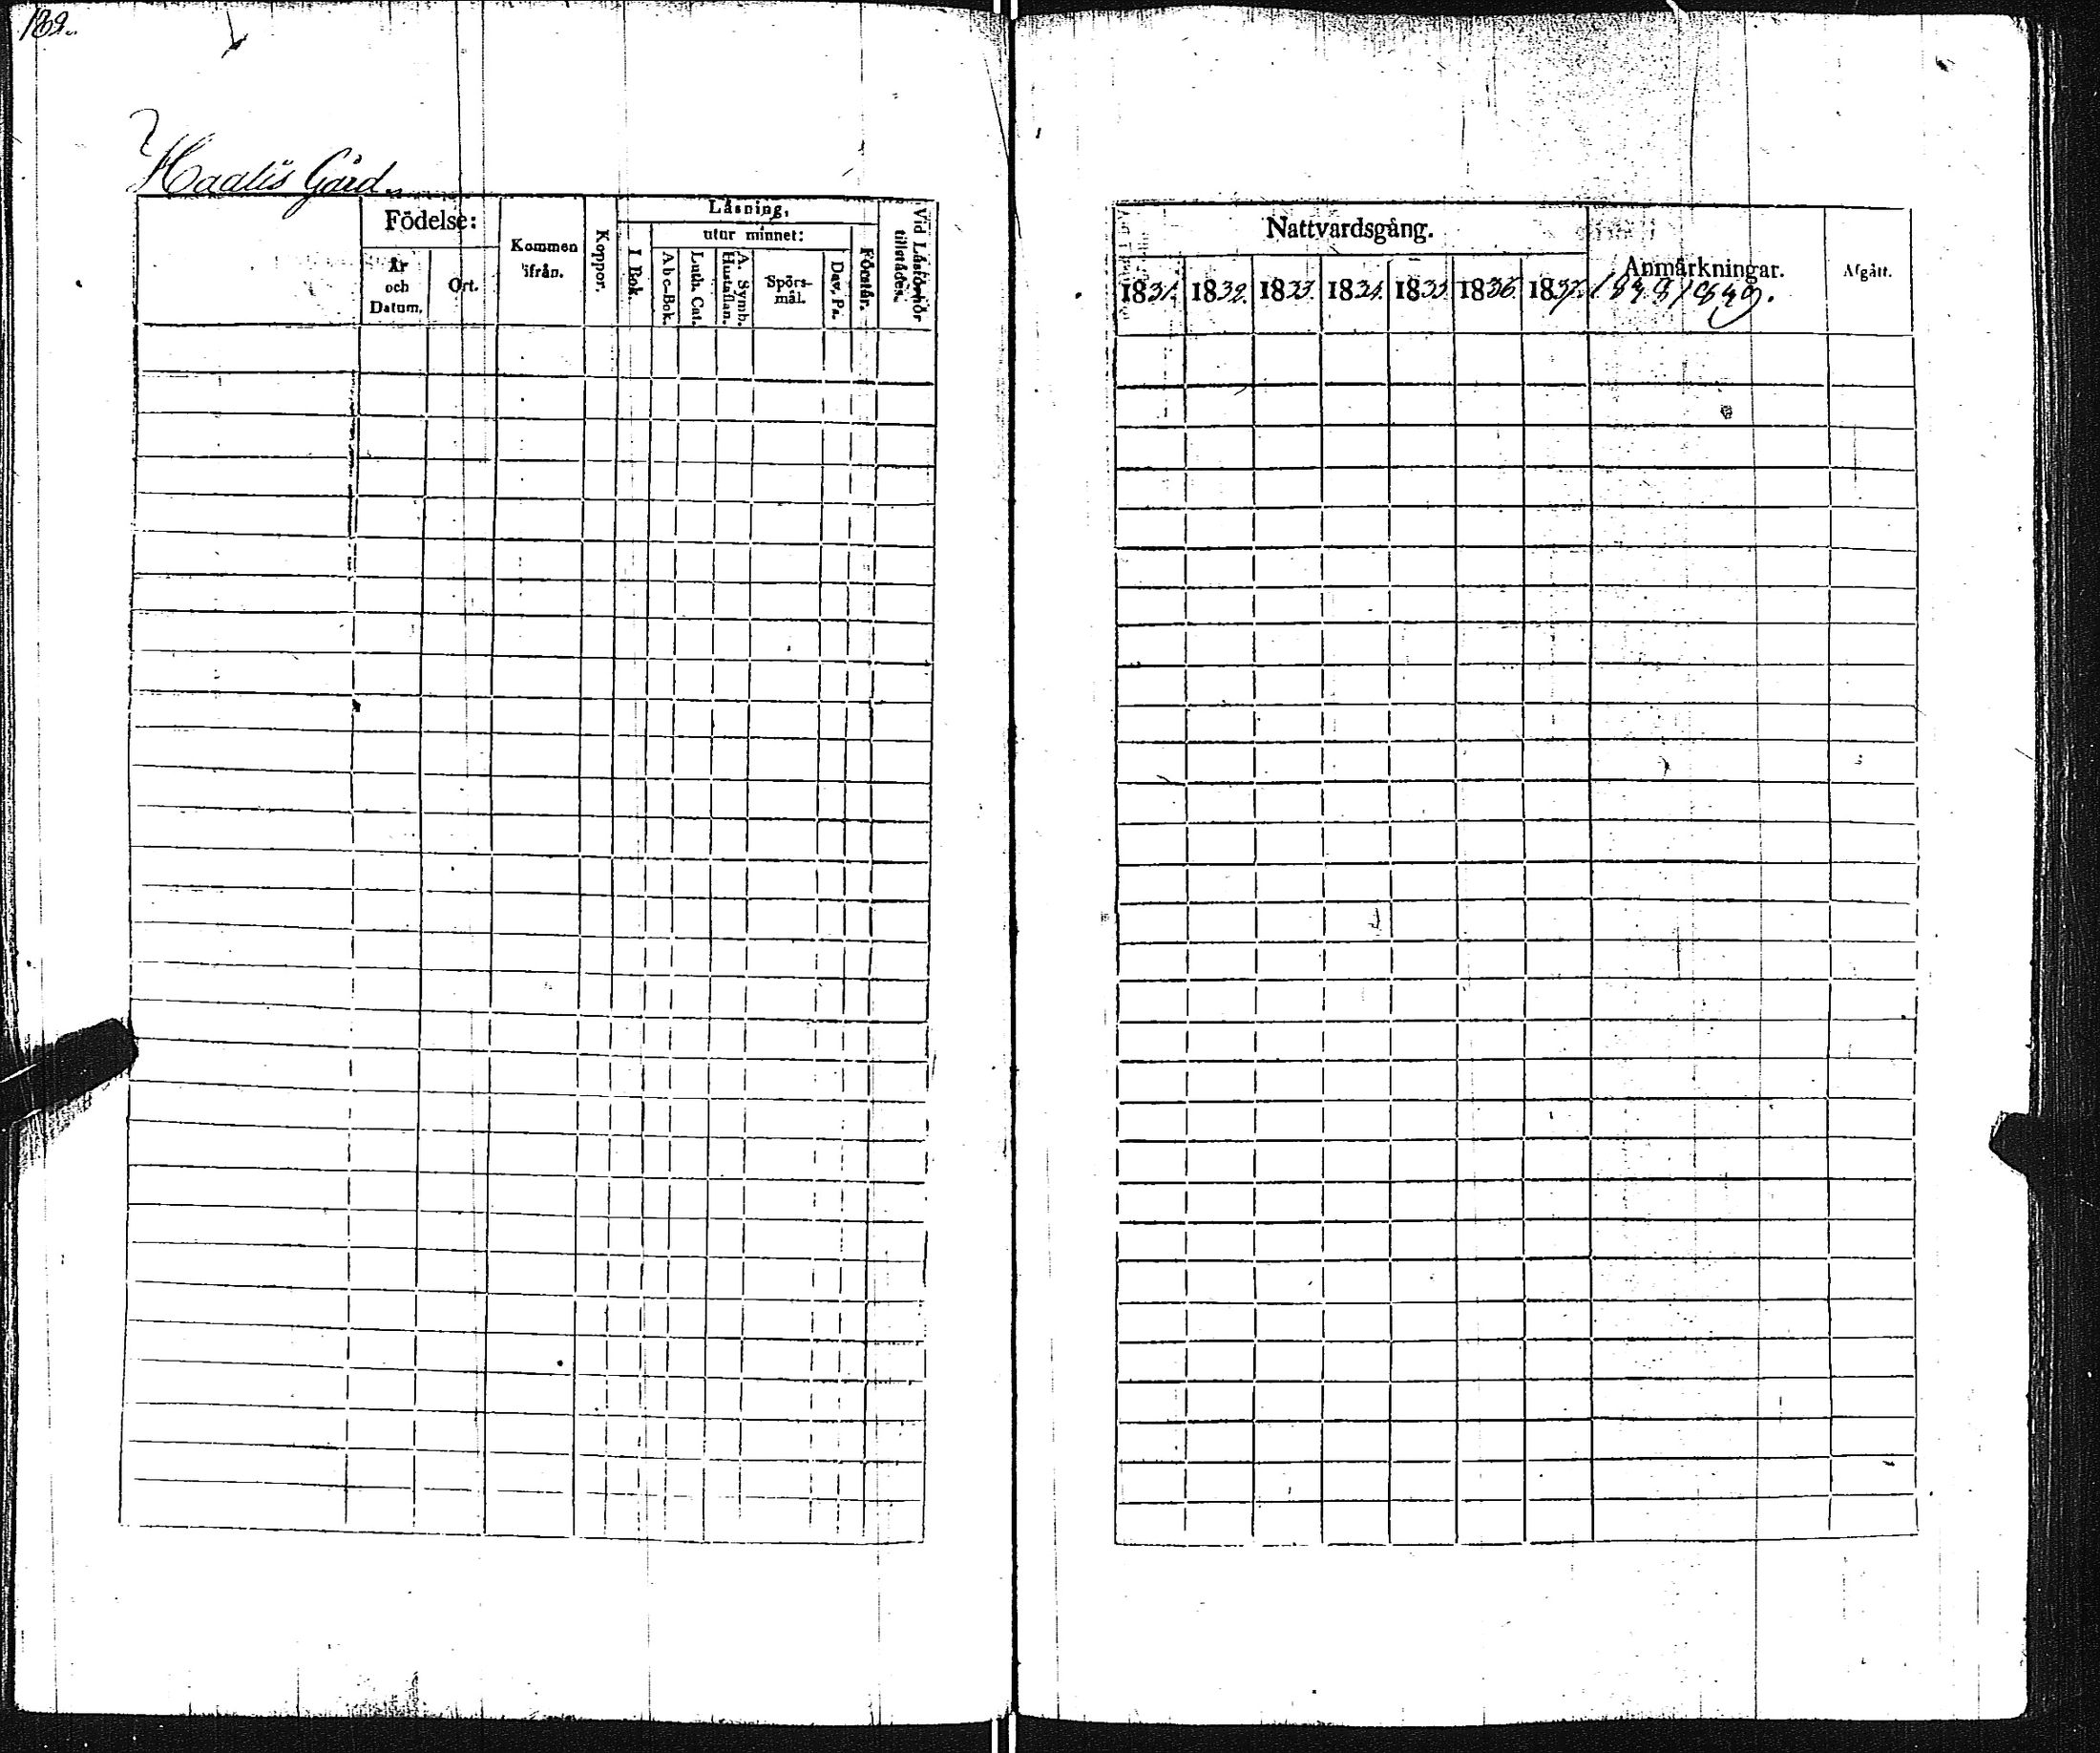 189.
Haalis Gård.
Födelse:
År och Datum.
Ort.
Kommen ifrån.
Koppor.
Läsning,
I Bok.
utur minnet:
Abc-Bok.
Luth. Cat.
A. Symb. Hustaflan.
Spörs-mål.
Dav. Ps.
Förstår.
Vid Läsförhör tillstädes.
Nattvardsgång.
1831. 1832. 1833. 1834. 1835. 1836. 1837. 1838 1839.
Anmärkningar.
Afgått.